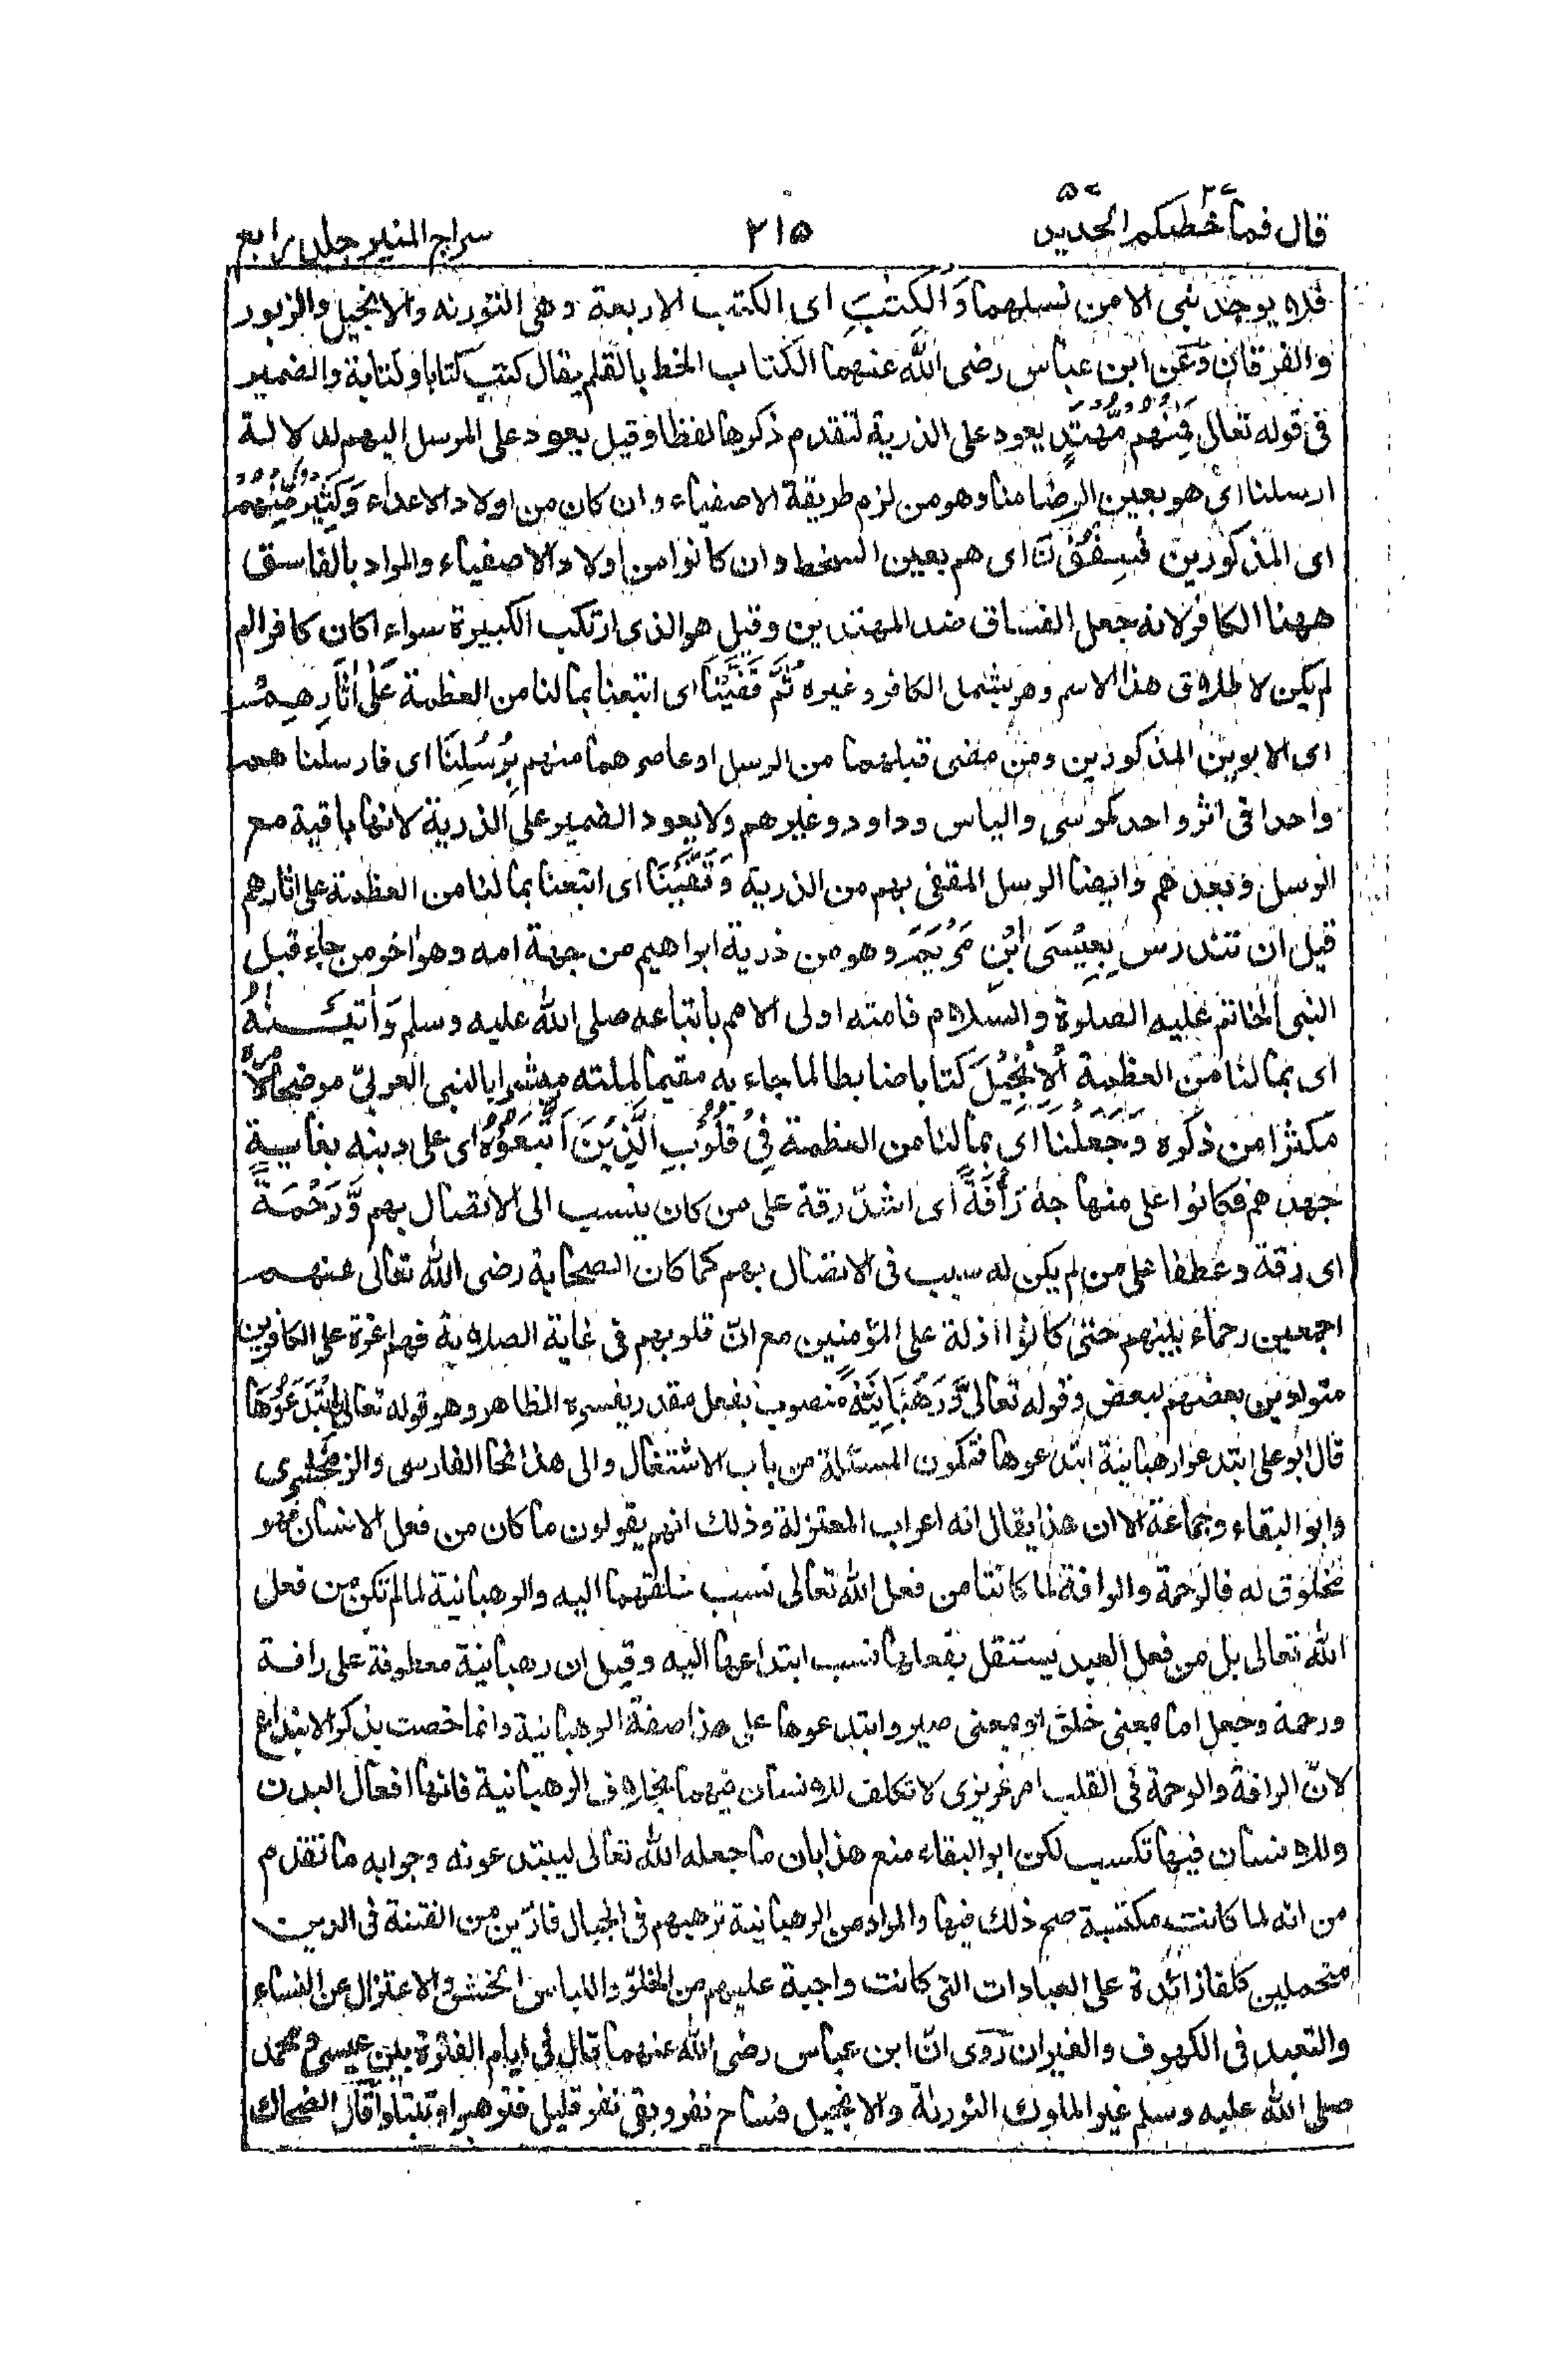 قال فما خطبكم ۲۷ الحديد ۵۷
۲۱۵
سراج المنير جلد رابع
فلا يوجد نبي الا من نسلهما وَالْكِتٰبَ اى الكتب الاربعة وهى التورٰىة والانجيل والزبور
والفرقان وعن ابن عباس رضى الله عنهما الكتاب الخط بالقلم يقال كتب كتابا وكتابة والضمير
فى قوله تعالى فَمِنْهُمْ مُّهْتَدٍ يعود على الذرية لتقدم ذكرها لفظا وقيل يعود على المرسل اليهم لدلالة
ارسلنا اى هو بعين الرضا منا وهو من لزم طريقة الاصفياء وان كان من اولاد الاعداء وَكَثِيْرٌ مِّنْهُمْ
اى المذكورين فٰسِقُوْنَ اى هم بعين السخط وان كانوا من اولاد الاصفياء والمراد بالفاسق
ههنا الكافر لانه جعل الفساق ضد المهتدين وقيل هو الذى ارتكب الكبيرة سواء اكان كافرا ام
لم يكن لاطلاق هذا الاسم وهو يشمل الكافر وغيره ثُمَّ قَفَّيْنَا اى اتبعنا بما لنا من العظمة عَلٰى اٰثَارِهِمْ
اى الابوين المذكورين ومن مضى قبلهما من الرسل او عاصرهما منهم بِرُسُلِنَا اى فارسلناهم
واحدا فى اثر واحد كموسى والياس وداود وغيرهم ولا يعود الضمير على الذرية لانها باقية مع
الرسل وبعدهم وايضا الرسل المقفى بهم من الذرية وَقَفَّيْنَا اى اتبعنا بما لنا من العظمة على اثارهم
قبل ان تندرس بِعِيْسَى ابْنِ مَرْيَمَ وهو من ذرية ابراهيم من جهة امه وهو اخر من جاء قبل
النبى الخاتم عليه الصلوة والسلام فامته اولى الامم باتباعه صلى الله عليه وسلم وَاٰتَيْنٰهُ
اى بما لنا من العظمة الْاِنْجِيْلَ كتابا ضابطا لما جاء به مقيما لملته مبشرا بالنبى العربىّ موضحا لامره
مكثرا من ذكره وَجَعَلْنَا اى بما لنا من العظمة فِىْ قُلُوْبِ الَّذِيْنَ اتَّبَعُوْهُ اى على دينه بغاية
جهدهم فكانوا على منهاجه رَأْفَةً اى اشد رقة على من كان ينسب الى الاتصال بهم وَّرَحْمَةً
اى رقة وعطفا على من لم يكن له سبب فى الاتصال بهم كما كان الصحابة رضى الله تعالى عنهم
اجمعين رحماء بينهم حتى كانوا اذلة على المؤمنين مع ان قلوبهم فى غاية الصلابة فهم اعزة على الكافرين
متوادين بعضهم لبعض وقوله تعالى وَّرَهْبَانِيَّةَ منصوب بفعل مقدر يفسره الظاهر وهو قوله تعالى ابْتَدَعُوْهَا
قال ابو على ابتدعوا رهبانية ابتدعوها فتكون المسئلة من باب الاشتغال والى هذا نحا الفارسى والزمخشرى
وابو البقاء وجماعة الا ان هذا يقال انه اعراب المعتزلة وذلك انهم يقولون ما كان من فعل الانسان فهو
مخلوق له فالرحمة والرافة لما كانتا من فعل الله تعالى نسب خلقهما اليه والرهبانية لما لم تكن من فعل
الله تعالى بل من فعل العبد يستقل بفعلها نسب ابتداعها اليه وقيل ان رهبانية معطوفة على رافة
ورحمة وجعل اما بمعنى خلق او بمعنى صير وابتدعوها على هذا صفة الرهبانية وانما خصت بذكر الابتداع
لانّ الرافة والرحمة فى القلب امر غريزى لا تكلف للانسان فيهما بخلاف الرهبانية فانها افعال البدن
وللانسان فيها تكسب لكن ابو البقاء منع هذا بان ما جعله الله تعالى ليبتدعونه وجوابه ما تقدم
من انه لما كانت مكتسبة صح ذلك فيها والمراد من الرهبانية ترهبهم فى الجبال فارّين من الفتنة فى الدين
متحملين كلفا زائدة على العبادات التى كانت واجبة عليهم من الخلوّ واللباس الخشن والاعتزال عن النساء
والتعبد فى الكهوف والغيران روى انّ ابن عباس رضى الله عنهما قال فى ايام الفترة بين عيسى ومحمد
صلى الله عليه وسلم غير الملوك التورٰىة والانجيل فساح نفر وبقى نفر قليل فترهبوا وتبتلوا قال الضحاك